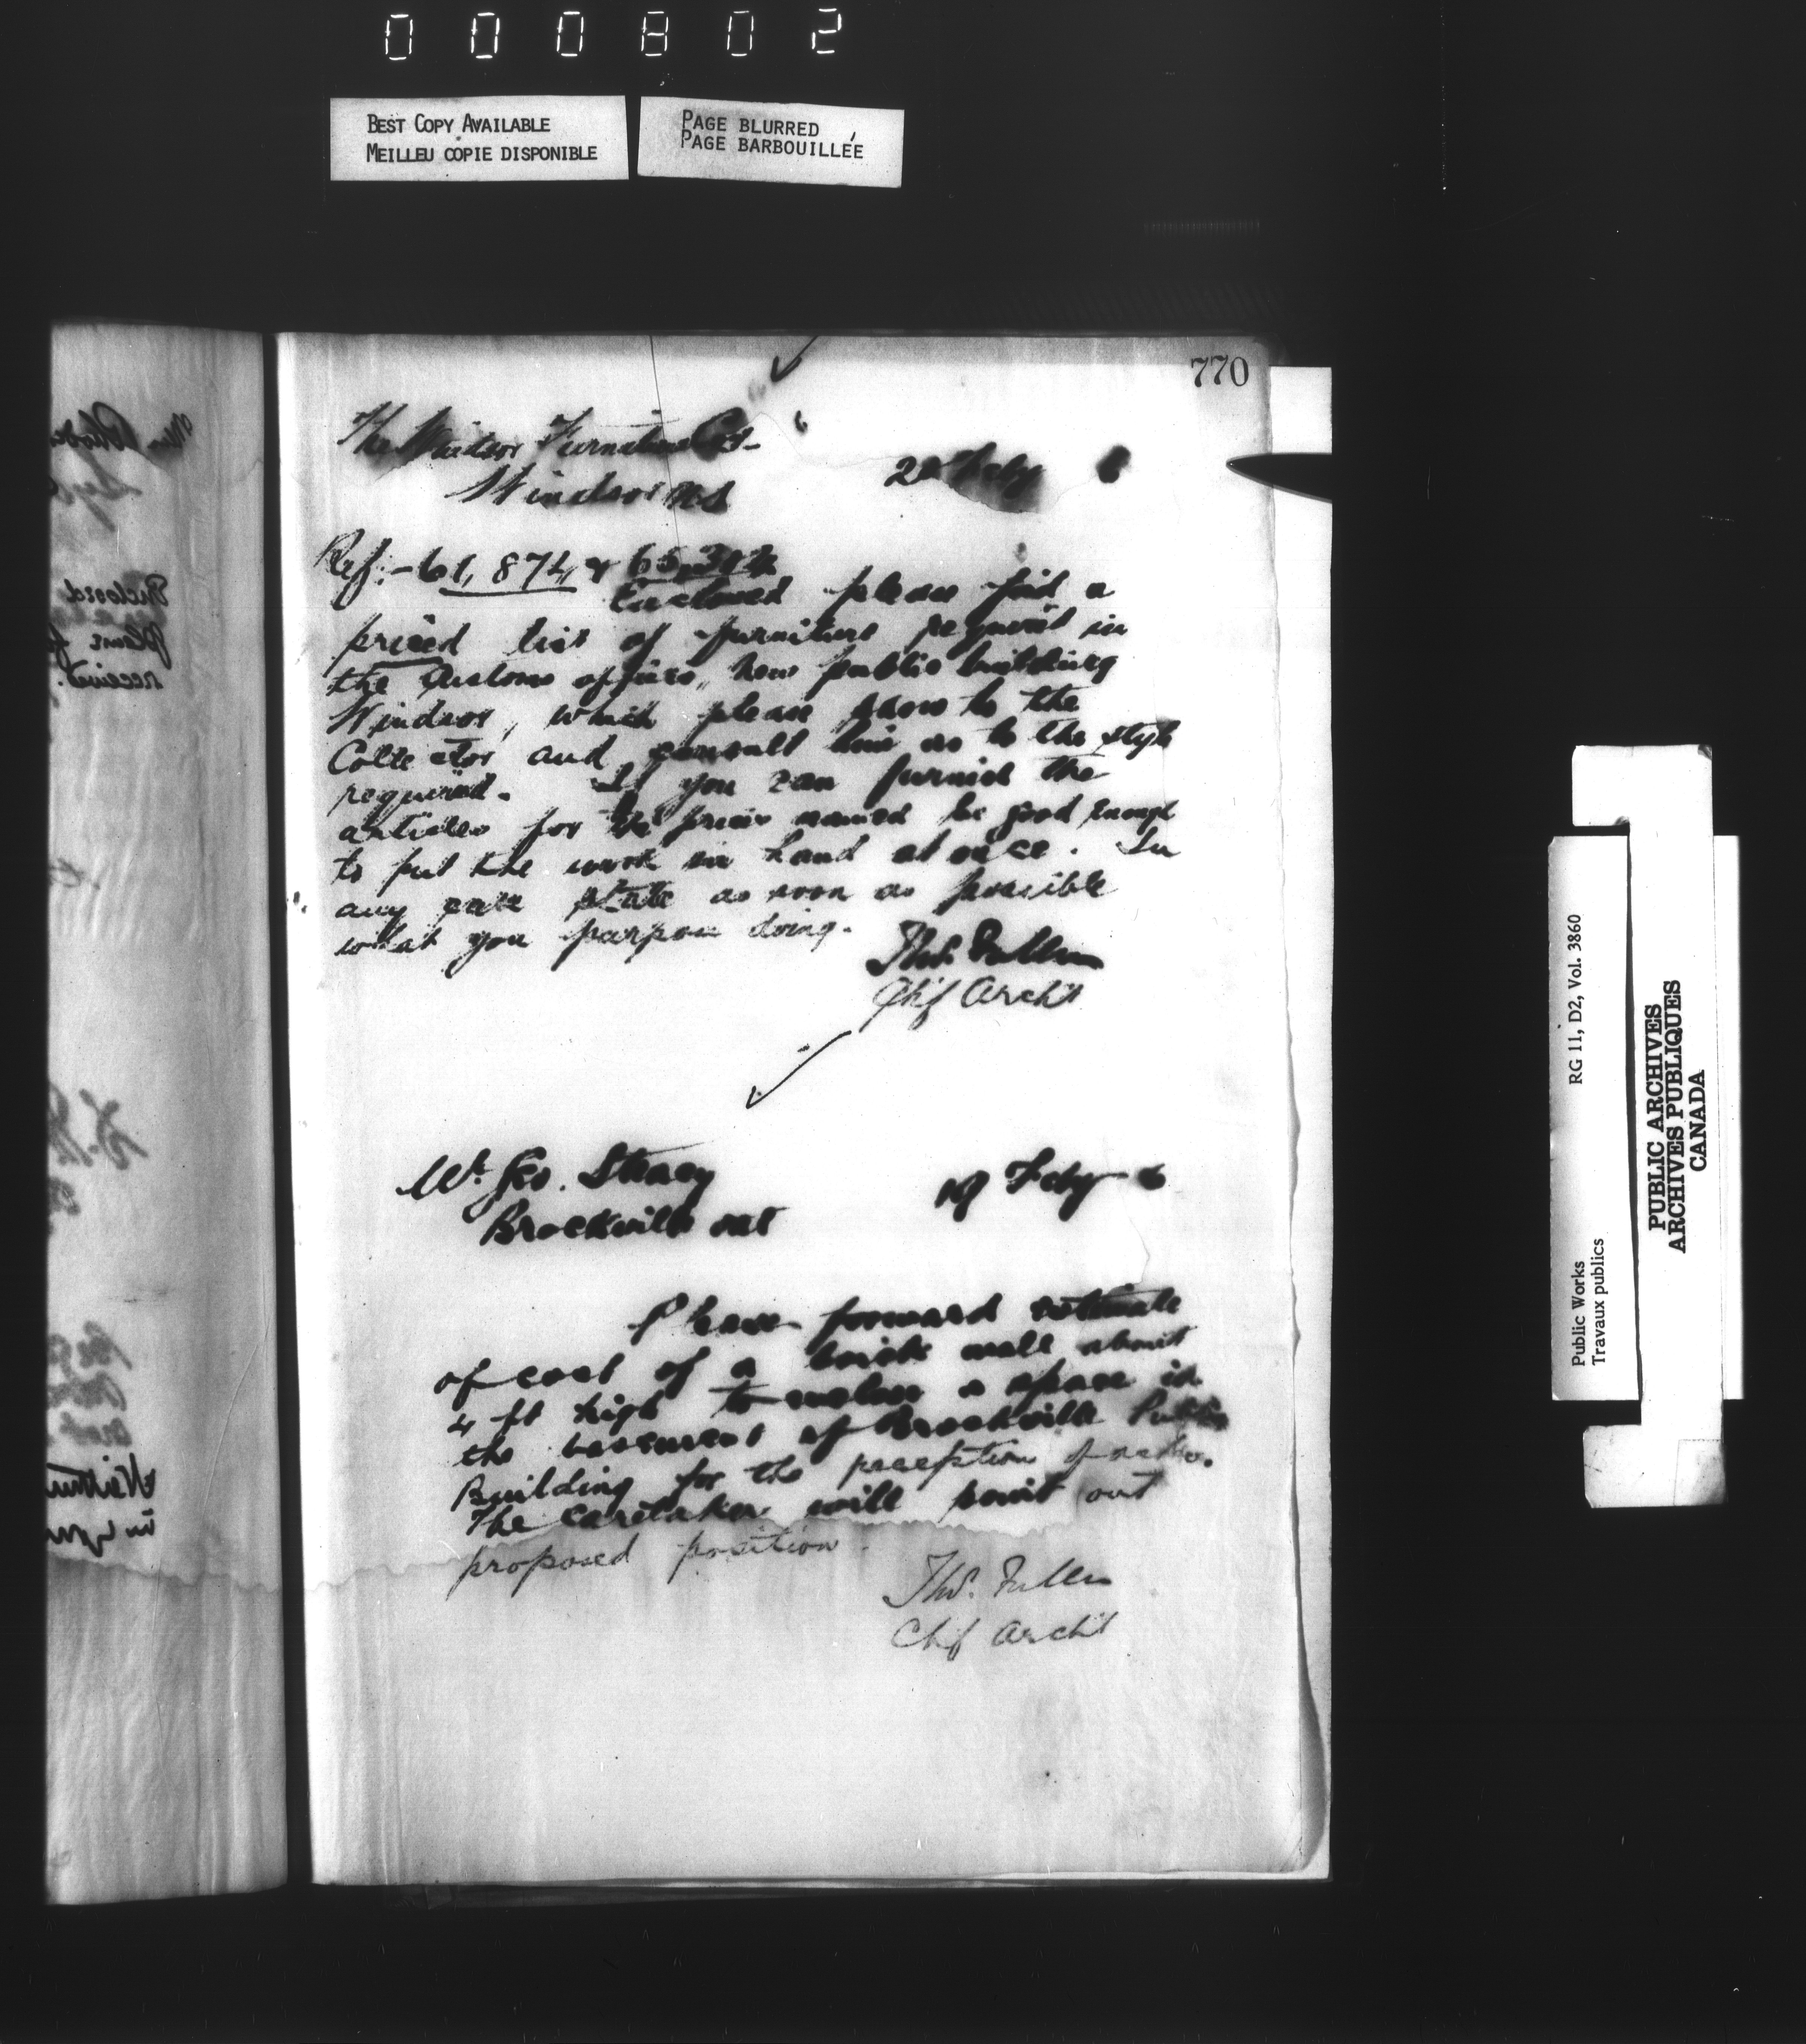 000802
BEST COPY AVAILABLE
MEILLEU COPIE DISPONIBLE
PAGE BLURRED
PAGE BARBOUILLÉE
770
The Windsor Furniture Co-
Windsor NS
22 Feby 6
Ref:- 61,874 &
Enclosed please find a
priced list of furniture required in
the Customs offices, new public building
Windsor, which please show to the
Collector and consult him as to the style
required. If you can furnish the
articles for the prices named be good enough
to put the work in hand at once. In
any case state as soon as possible
what you purpose doing.
Thos. Fuller
Chf Archt
Mr Geo. Stacy
Brockville Ont
19 Feby 6
Please forward estimate
of cost of a brick wall about
4 ft high to enclose a space in
the basement of Brockville Public
Building for the reception of ashes.
The Caretaker will point out
proposed position.
Thos. Fuller
Chf Archt
Enclosed
plans
received.
Public Works
Travaux publics
RG 11, D2, Vol. 3860
PUBLIC ARCHIVES
ARCHIVES PUBLIQUES
CANADA